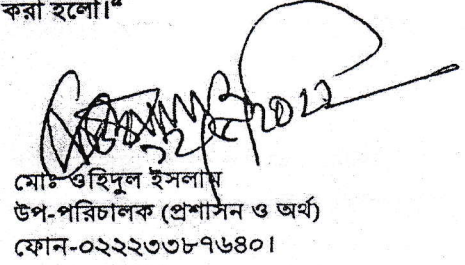 করা হলো।"
মোঃ ওহিদুল ইসলাম
উপ-পরিচালক (প্রশাসন ও অর্থ)
ফোন-০২২২৩৩৮৭৬৪০।